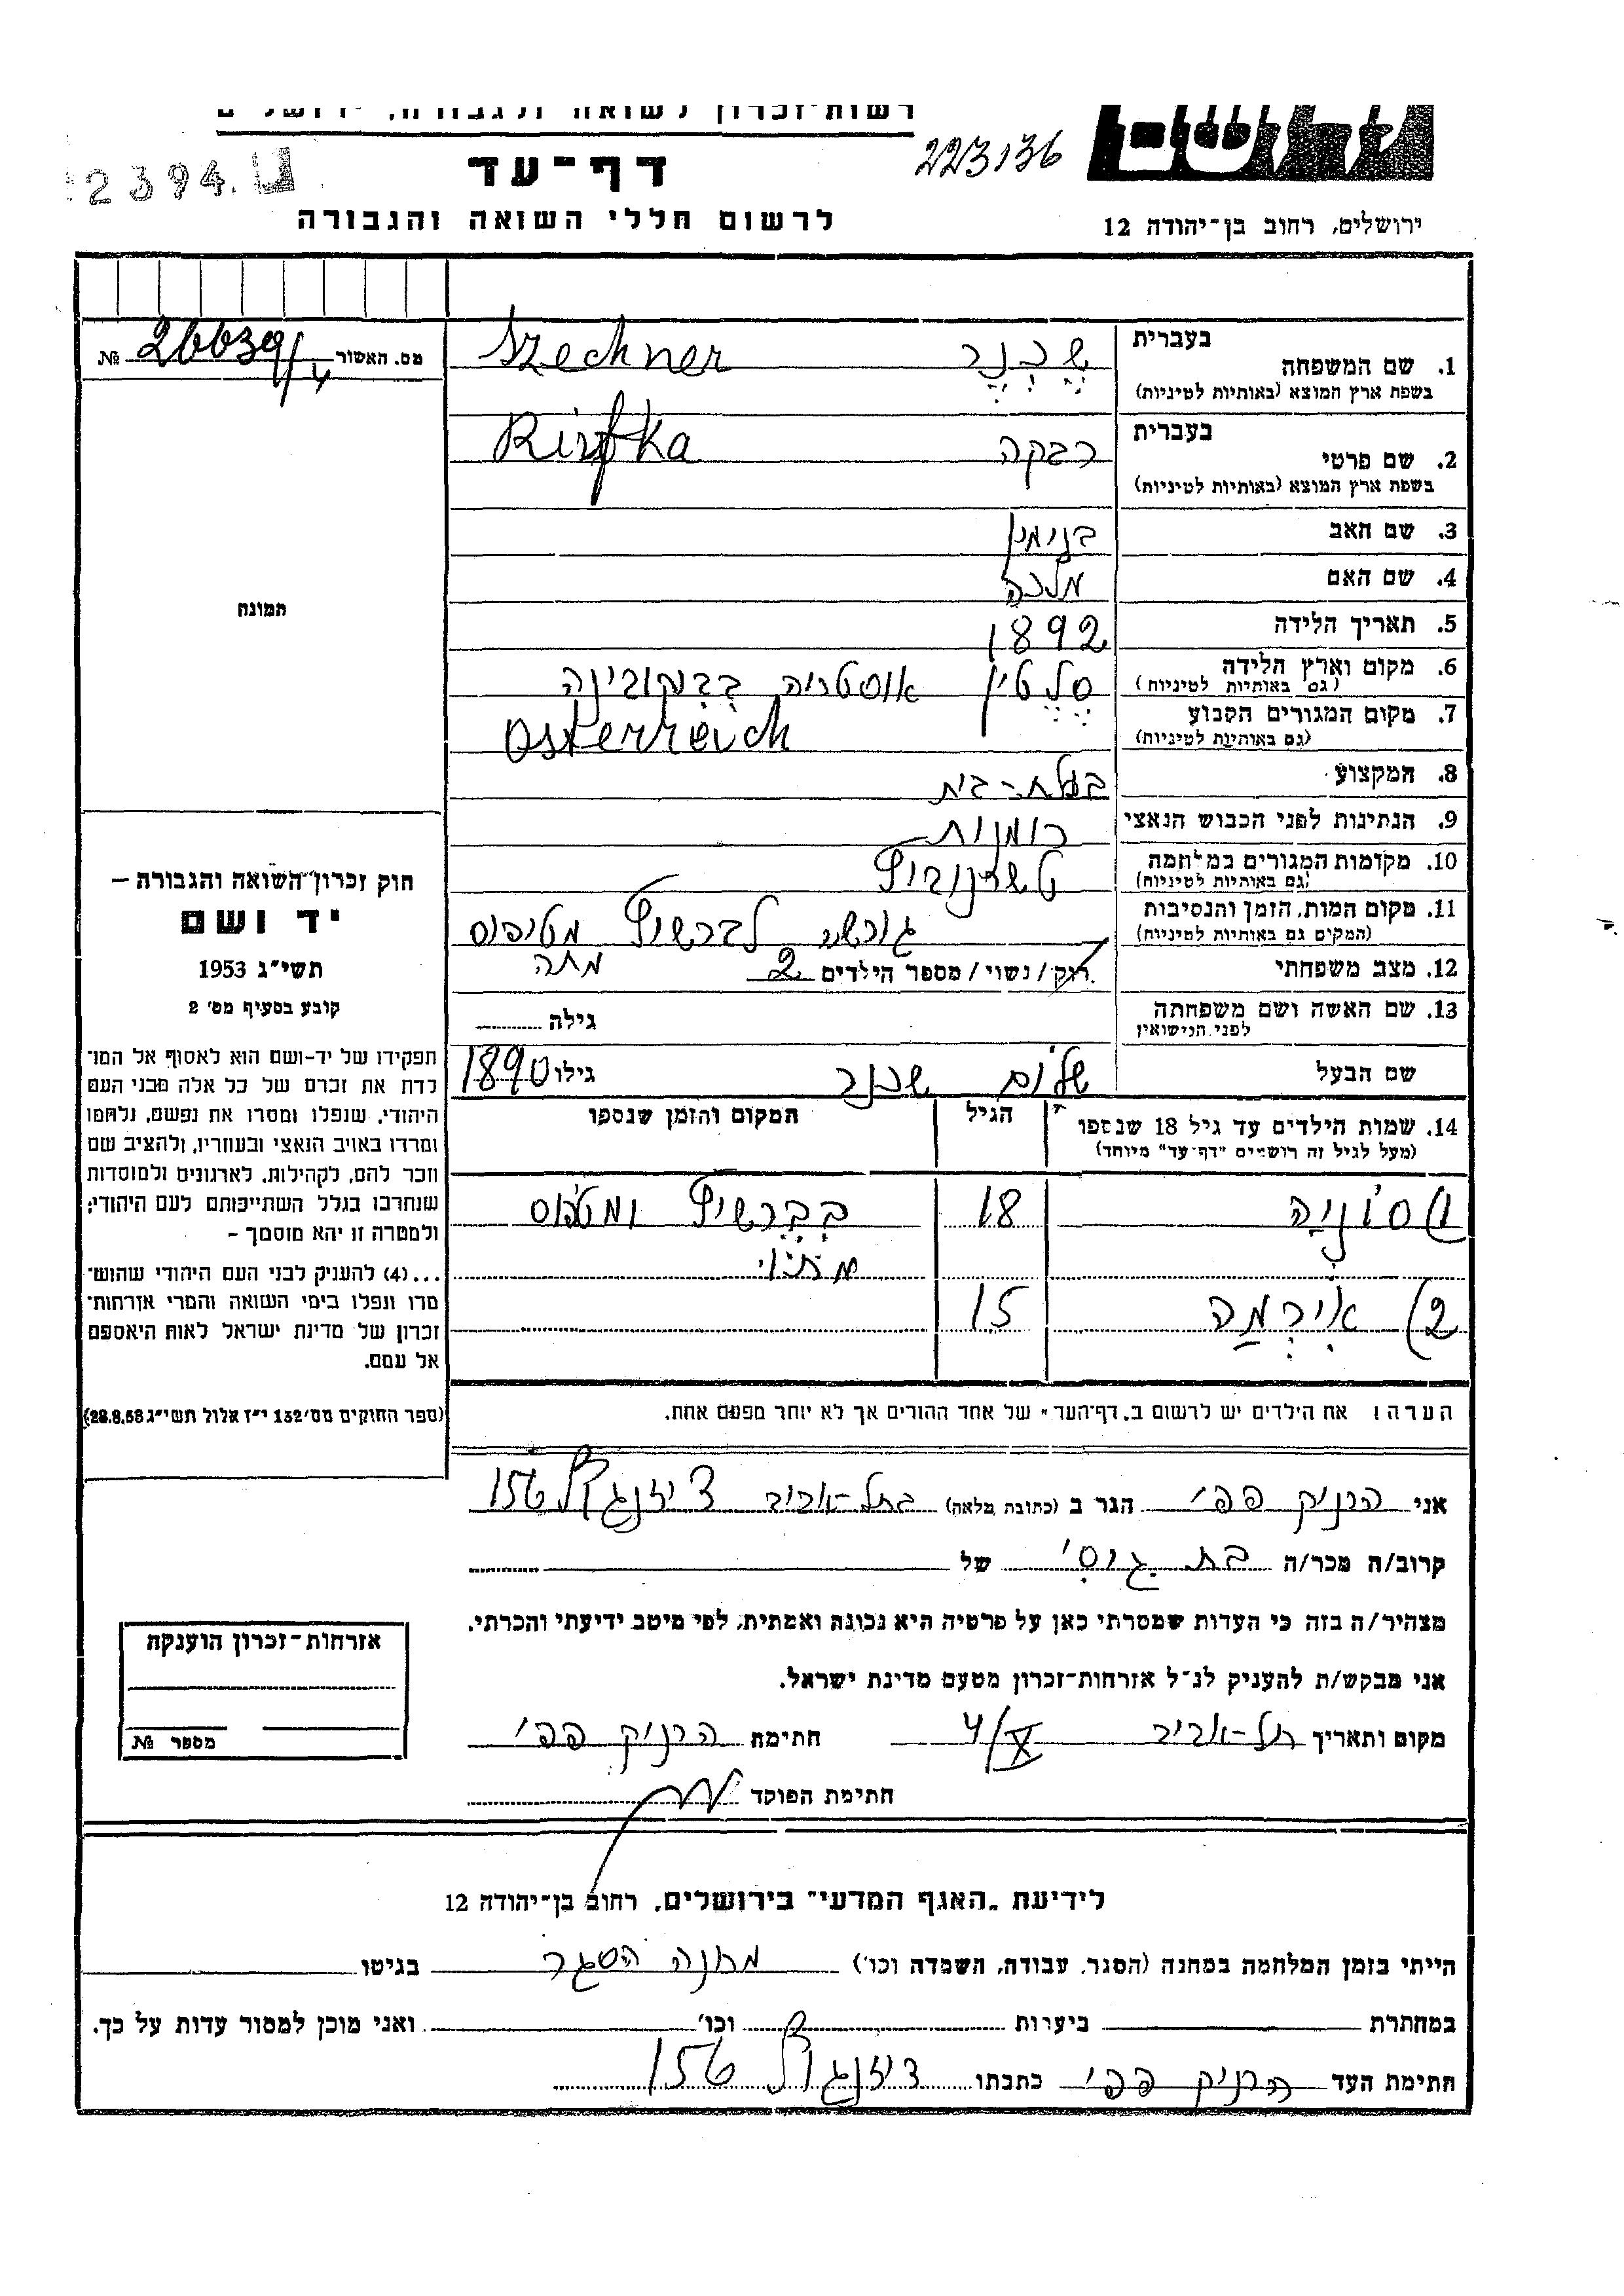 רשות-זכרון לשואה ולגבורה, ירושלים
223136
2394
דף-עד
לרשום חללי השואה והגבורה
ירושלים, רחוב בן-יהודה 12
בעברית
1. שם המשפחה
בשפת ארץ המוצא (באותיות לטיניות)
שֶׂכְנֶר Szechner
מס. האשור № 26639/
בעברית
2. שם פרטי
בשפת ארץ המוצא (באותיות לטיניות)
רבקה Rifka
3. שם האב בנימין
4. שם האם מלכה
5. תאריך הלידה 1892
6. מקום וארץ הלידה
(גם באותיות לטיניות)
סֶלֶטין אוסטריה בבוקובינה
7. מקום המגורים הקבוע
(גם באותיות לטיניות)
Osterreich
8. המקצוע בעלת-בית
9. הנתינות לפני הכבוש הנאצי רומנית
10. מקומות המגורים במלחמה
(גם באותיות לטיניות)
טשרנוביץ
11. מקום המות, הזמן והנסיבות
(המקום גם באותיות לטיניות)
גורשה לברשיץ מטיפוס
מתה
12. מצב משפחתי רוק / נשוי / מספר הילדים 2
13. שם האשה ושם משפחתה
לפני הנישואין
גילה
שם הבעל שלום שכנר גילו 1890
14. שמות הילדים עד גיל 18 שנספו
(מעל לגיל זה רושמים "דף-עד" מיוחד)
הגיל
המקום והזמן שנספו
1) סוֹנְיָה 18 בְּבֶּרשיץ ומטיפוס
מתו
2) אִירְמָה 15
הערה: את הילדים יש לרשום ב„דף-העד" של אחד ההורים אך לא יותר מפעם אחת.
תמונה
חוק זכרון השואה והגבורה —
יד ושם
תשי"ג 1953
קובע בסעיף מס' 2
תפקידו של יד-ושם הוא לאסוף אל המו־
לדת את זכרם של כל אלה מבני העם
היהודי, שנפלו ומסרו את נפשם, נלחמו
ומרדו באויב הנאצי ובעוזריו, ולהציב שם
וזכר להם, לקהילות, לארגונים ולמוסדות
שנחרבו בגלל השתייכותם לעם היהודי;
ולמטרה זו יהא מוסמך —
...(4) להעניק לבני העם היהודי שהוש־
מדו ונפלו בימי השואה והמרי אזרחות־
זכרון של מדינת ישראל לאות היאספם
אל עמם.
(ספר החוקים מס' 132 י"ז אלול תשי"ג 28.8.53)
אני הרניק פפי הגר ב (כתובת מלאה) בתל-אביב דיזנגוף 156
קרוב/ה מכר/ה בת גיסי של
מצהיר/ה בזה כי העדות שמסרתי כאן על פרטיה היא נכונה ואמתית, לפי מיטב ידיעתי והכרתי.
אני מבקש/ת להעניק לנ"ל אזרחות-זכרון מטעם מדינת ישראל.
מקום ותאריך תל-אביב 4/X חתימת הרניק פפי
חתימת הפוקד
אזרחות-זכרון הוענקה
מספר №
לידיעת „האגף המדעי" בירושלים, רחוב בן-יהודה 12
הייתי בזמן המלחמה במחנה (הסגר, עבודה, השמדה וכו') מחנה הסגר בגיטו
במחתרת ביערות וכו' ואני מוכן למסור עדות על כך.
חתימת העד הרניק פפי כתבתו דיזנגוף 156